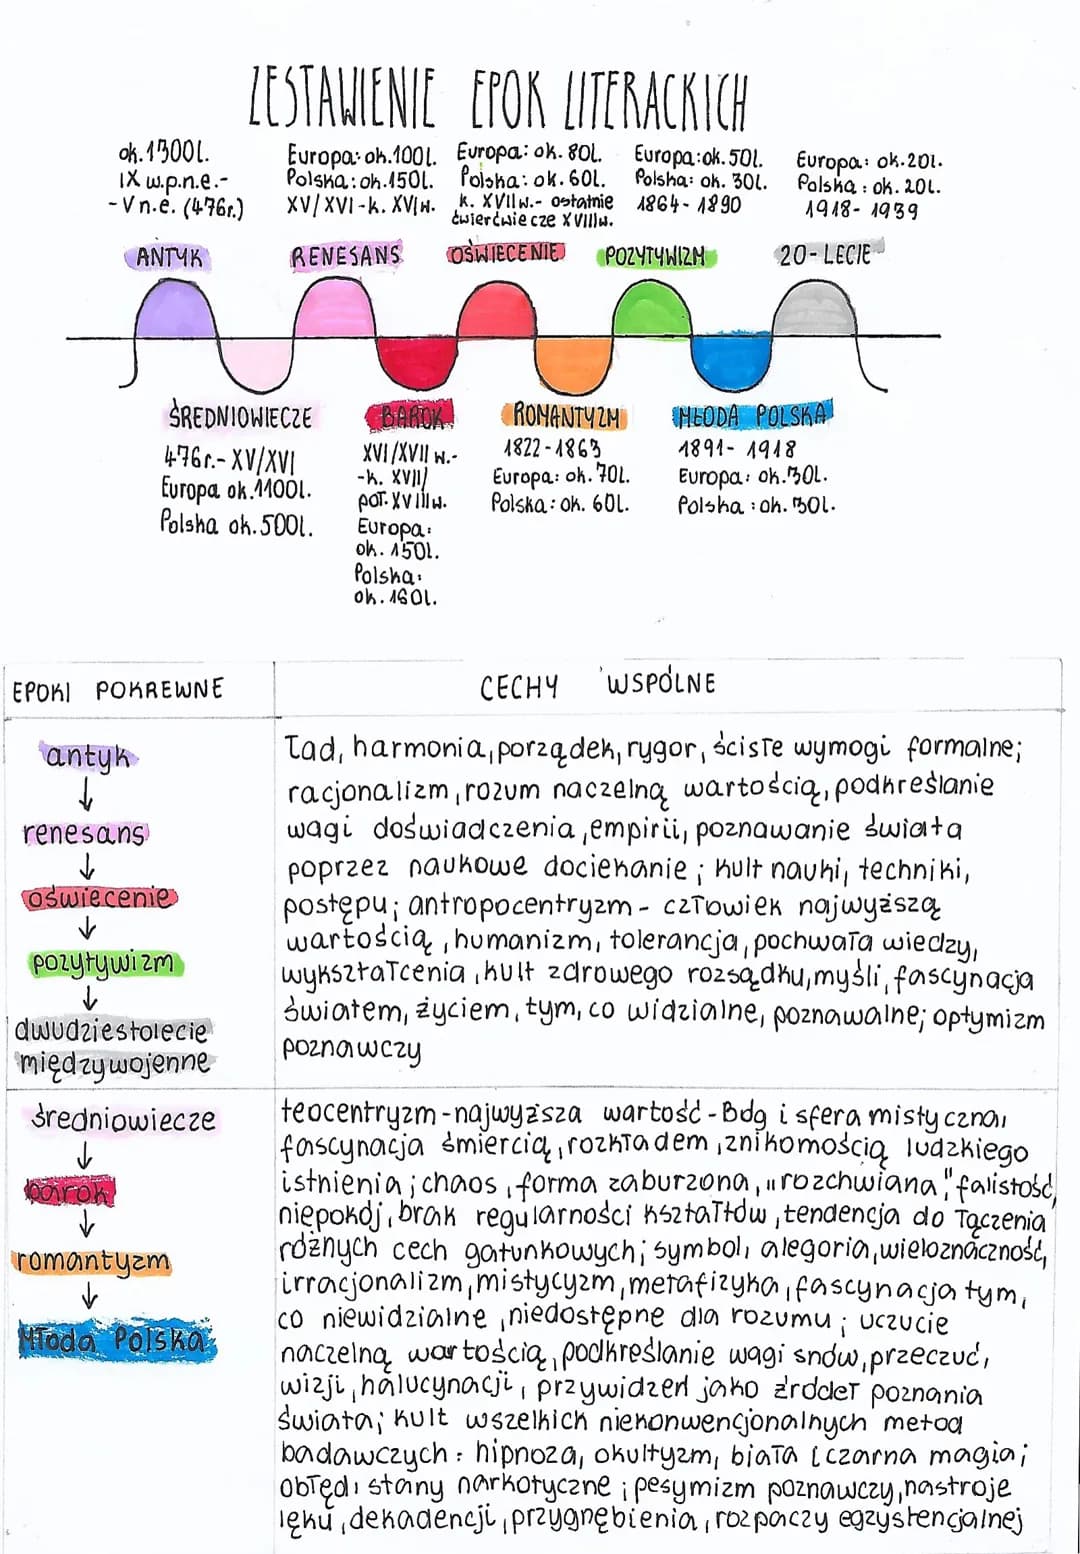 ZESTAWIENIE EPOK LITERACKICH
ok. 1300l.
IX w.p.n.e.-
-V n.e. (476r.)
Europa: ok.100l.
Polska: ok.150l.
XV/XVI-k. XVIw.
Europa: ok. 80l.
Polska: ok. 60l.
k. XVIIw.- ostatnie
ćwierćwiecze XVIIIw.
Europa:ok.50l.
Polska: ok. 30l.
1864- 1890
Europa: ok.20l.
Polska : ok. 20l.
1918- 1939
ANTYK
RENESANS
OŚWIECENIE
POZYTYWIZM
20-LECIE
ŚREDNIOWIECZE
476r.- XV/XVI
Europa ok.1100l.
Polska ok.500l.
BAROK
XVI/XVII w.-
-k. XVII/
poł. XVIIIw.
Europa:
ok. 150l.
Polska:
ok. 160l.
ROMANTYZM
1822-1863
Europa: ok. 70l.
Polska: ok. 60l.
MŁODA POLSKA
1891- 1918
Europa: ok.30l.
Polska : ok. 30l.
EPOKI POKREWNE
CECHY WSPÓLNE
antyk
↓
renesans
↓
oświecenie
↓
pozytywizm
↓
dwudziestolecie
międzywojenne
Ład, harmonia, porządek, rygor, ścisłe wymogi formalne;
racjonalizm, rozum naczelną wartością, podkreślanie
wagi doświadczenia, empirii, poznawanie świata
poprzez naukowe dociekanie; kult nauki, techniki,
postępu; antropocentryzm - człowiek najwyższą
wartością, humanizm, tolerancja, pochwała wiedzy,
wykształcenia, kult zdrowego rozsądku, myśli, fascynacja
światem, życiem, tym, co widzialne, poznawalne; optymizm
poznawczy
średniowiecze
↓
barok
↓
romantyzm
↓
Młoda Polska
teocentryzm-najwyższa wartość-Bóg i sfera mistyczna,
fascynacja śmiercią, rozkładem, znikomością ludzkiego
istnienia; chaos, forma zaburzona, "rozchwiana", falistość,
niepokój, brak regularności kształtów, tendencja do łączenia
różnych cech gatunkowych; symbol, alegoria, wieloznaczność,
irracjonalizm, mistycyzm, metafizyka, fascynacja tym,
co niewidzialne, niedostępne dla rozumu; uczucie
naczelną wartością, podkreślanie wagi snów, przeczuć,
wizji, halucynacji, przywidzeń jako źródeł poznania
świata; kult wszelkich niekonwencjonalnych metod
badawczych: hipnoza, okultyzm, biała i czarna magia;
obłęd, stany narkotyczne; pesymizm poznawczy, nastroje
lęku, dekadencji, przygnębienia, rozpaczy egzystencjalnej